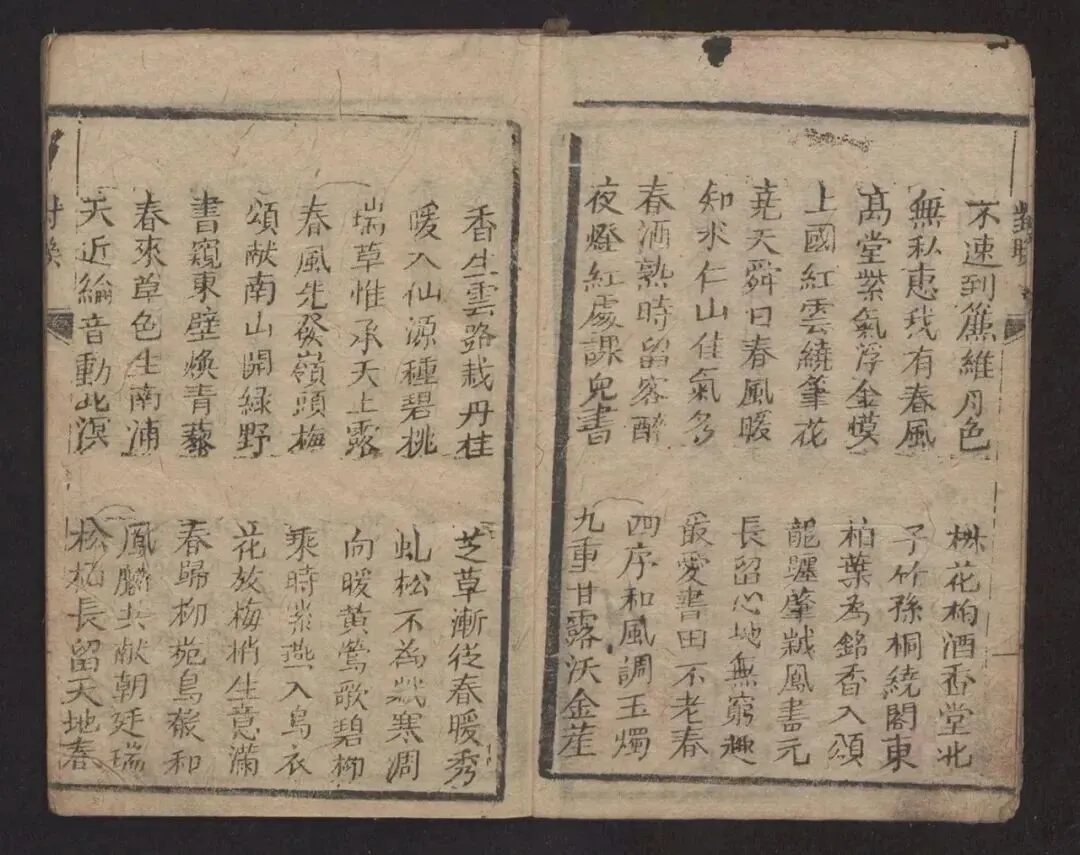 對聯
不速到簾維月色
無私惠我有春風
高堂紫氣浮金幙
上國紅雲繞筆花
堯天舜日春風暖
知水仁山佳氣多
春酒熟時留客醉
夜燈紅處課兒書
椒花柏酒香堂北
子竹孫桐繞閣東
柏葉為銘香入頌
龍躔肇歲鳳書元
長留心地無窮趣
最愛書田不老春
四序和風調玉燭
九重甘露沃金莖
香生雲路栽丹桂
暖入仙源種碧桃
瑞草惟承天上露
春風先發嶺頭梅
頌献南山開綠野
書窺東壁煥青藜
春來草色生南浦
天近綸音動北溟
芝草漸從春暖秀
虬松不為歲寒凋
向暖黃鶯歌碧柳
乘時紫燕入烏衣
花放梅梢生意滿
春歸柳苑鳥聲和
鳳麟共献朝廷瑞
松柏長留天地春